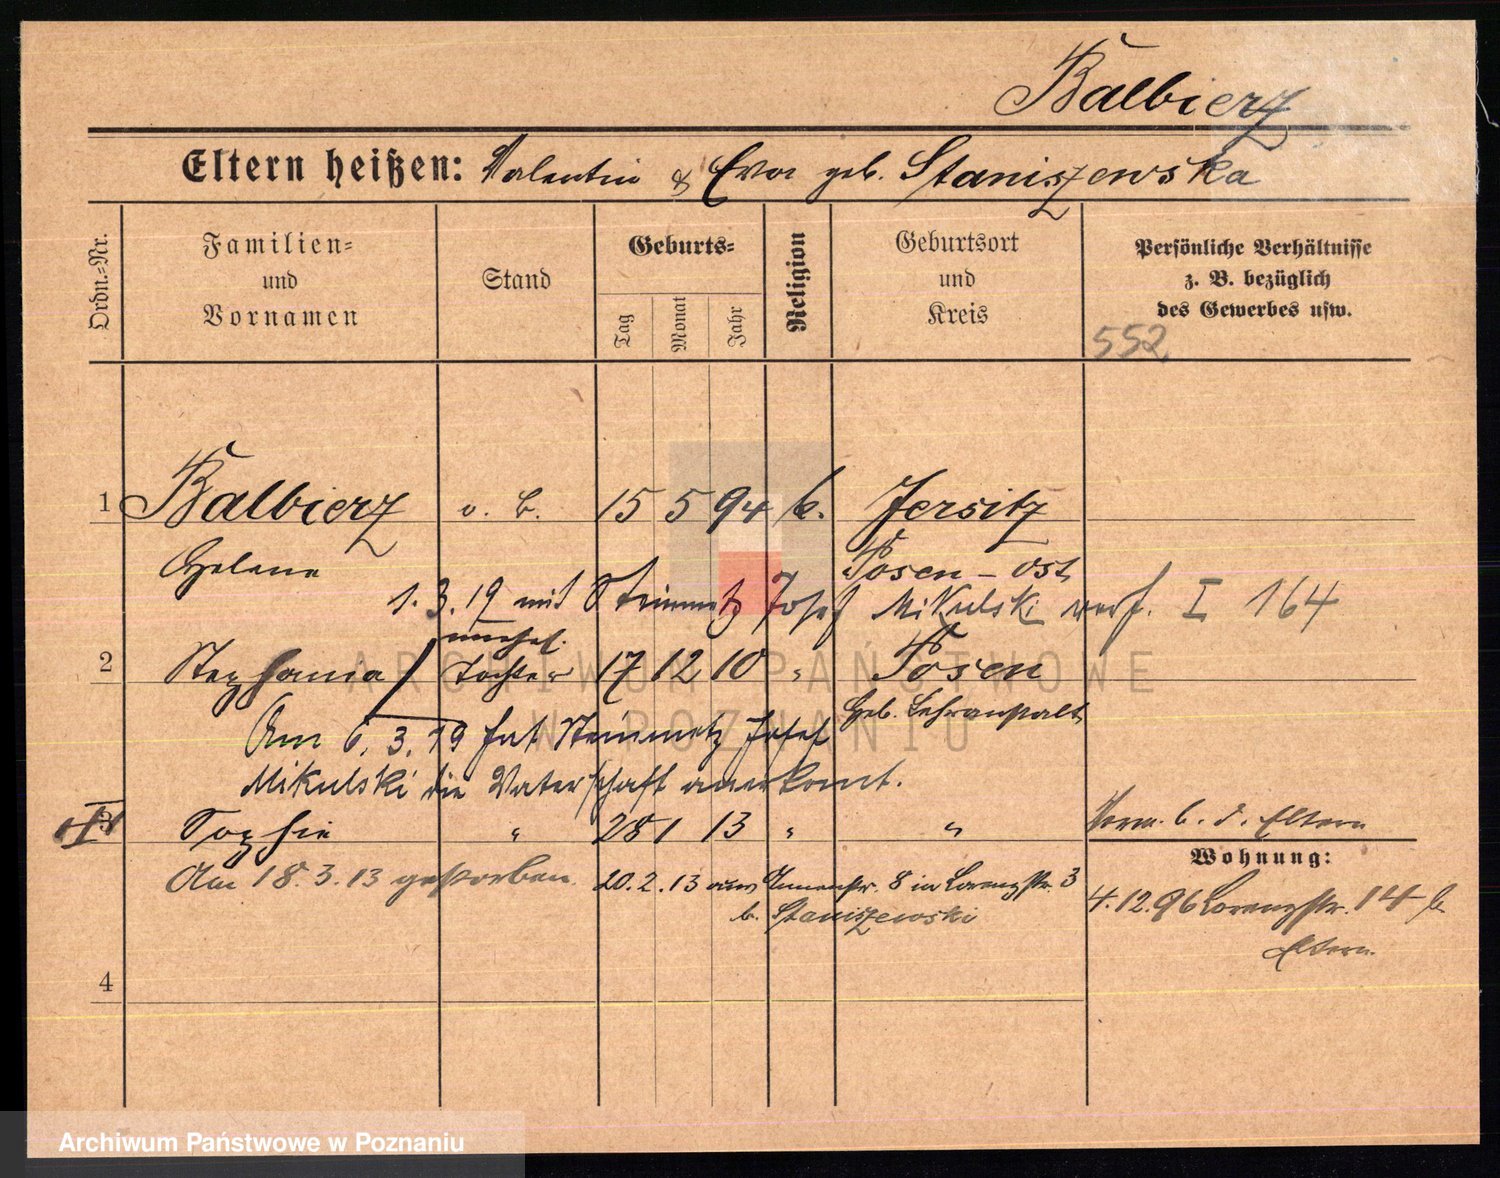 Balbierz
Eltern heißen: Valentin & Eva geb. Staniszewska
Ordn.-Nr.
Familien-
und
Vornamen
Stand
Geburts-
Tag
Monat
Jahr
Religion
Geburtsort
und
Kreis
Persönliche Verhältnisse
z. B. bezüglich
des Gewerbes usw.
552
1 Balbierz o. B. 15 5 94 k. Jersitz
Helene Posen-Ost
1. 3. 19 mit Steinmetz Josef Mikulski verh. I 164
unehel.
2 Stephania Tochter 17 12 10 " Posen
Heb. Lehranstalt
Am 6. 3. 19 hat Steinmetz Josef
Mikulski die Vaterschaft anerkannt.
3 Sophie " 28 1 13 " " Vorm. b. d. Eltern
Wohnung:
Am 18. 3. 13 gestorben. 20. 2. 13 aus Annenstr. 8 in Lorenzstr. 3
b. Staniszewski
4. 12. 96 Lorenzstr. 14 b.
Eltern.
4
ARCHIWUM PAŃSTWOWE
W POZNANIU
Archiwum Państwowe w Poznaniu